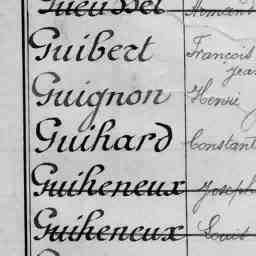 Gueusset
Guibert François
Jean
Guignon Henri
Guihard Constant
Guiheneux Joseph
Guiheneux Louis